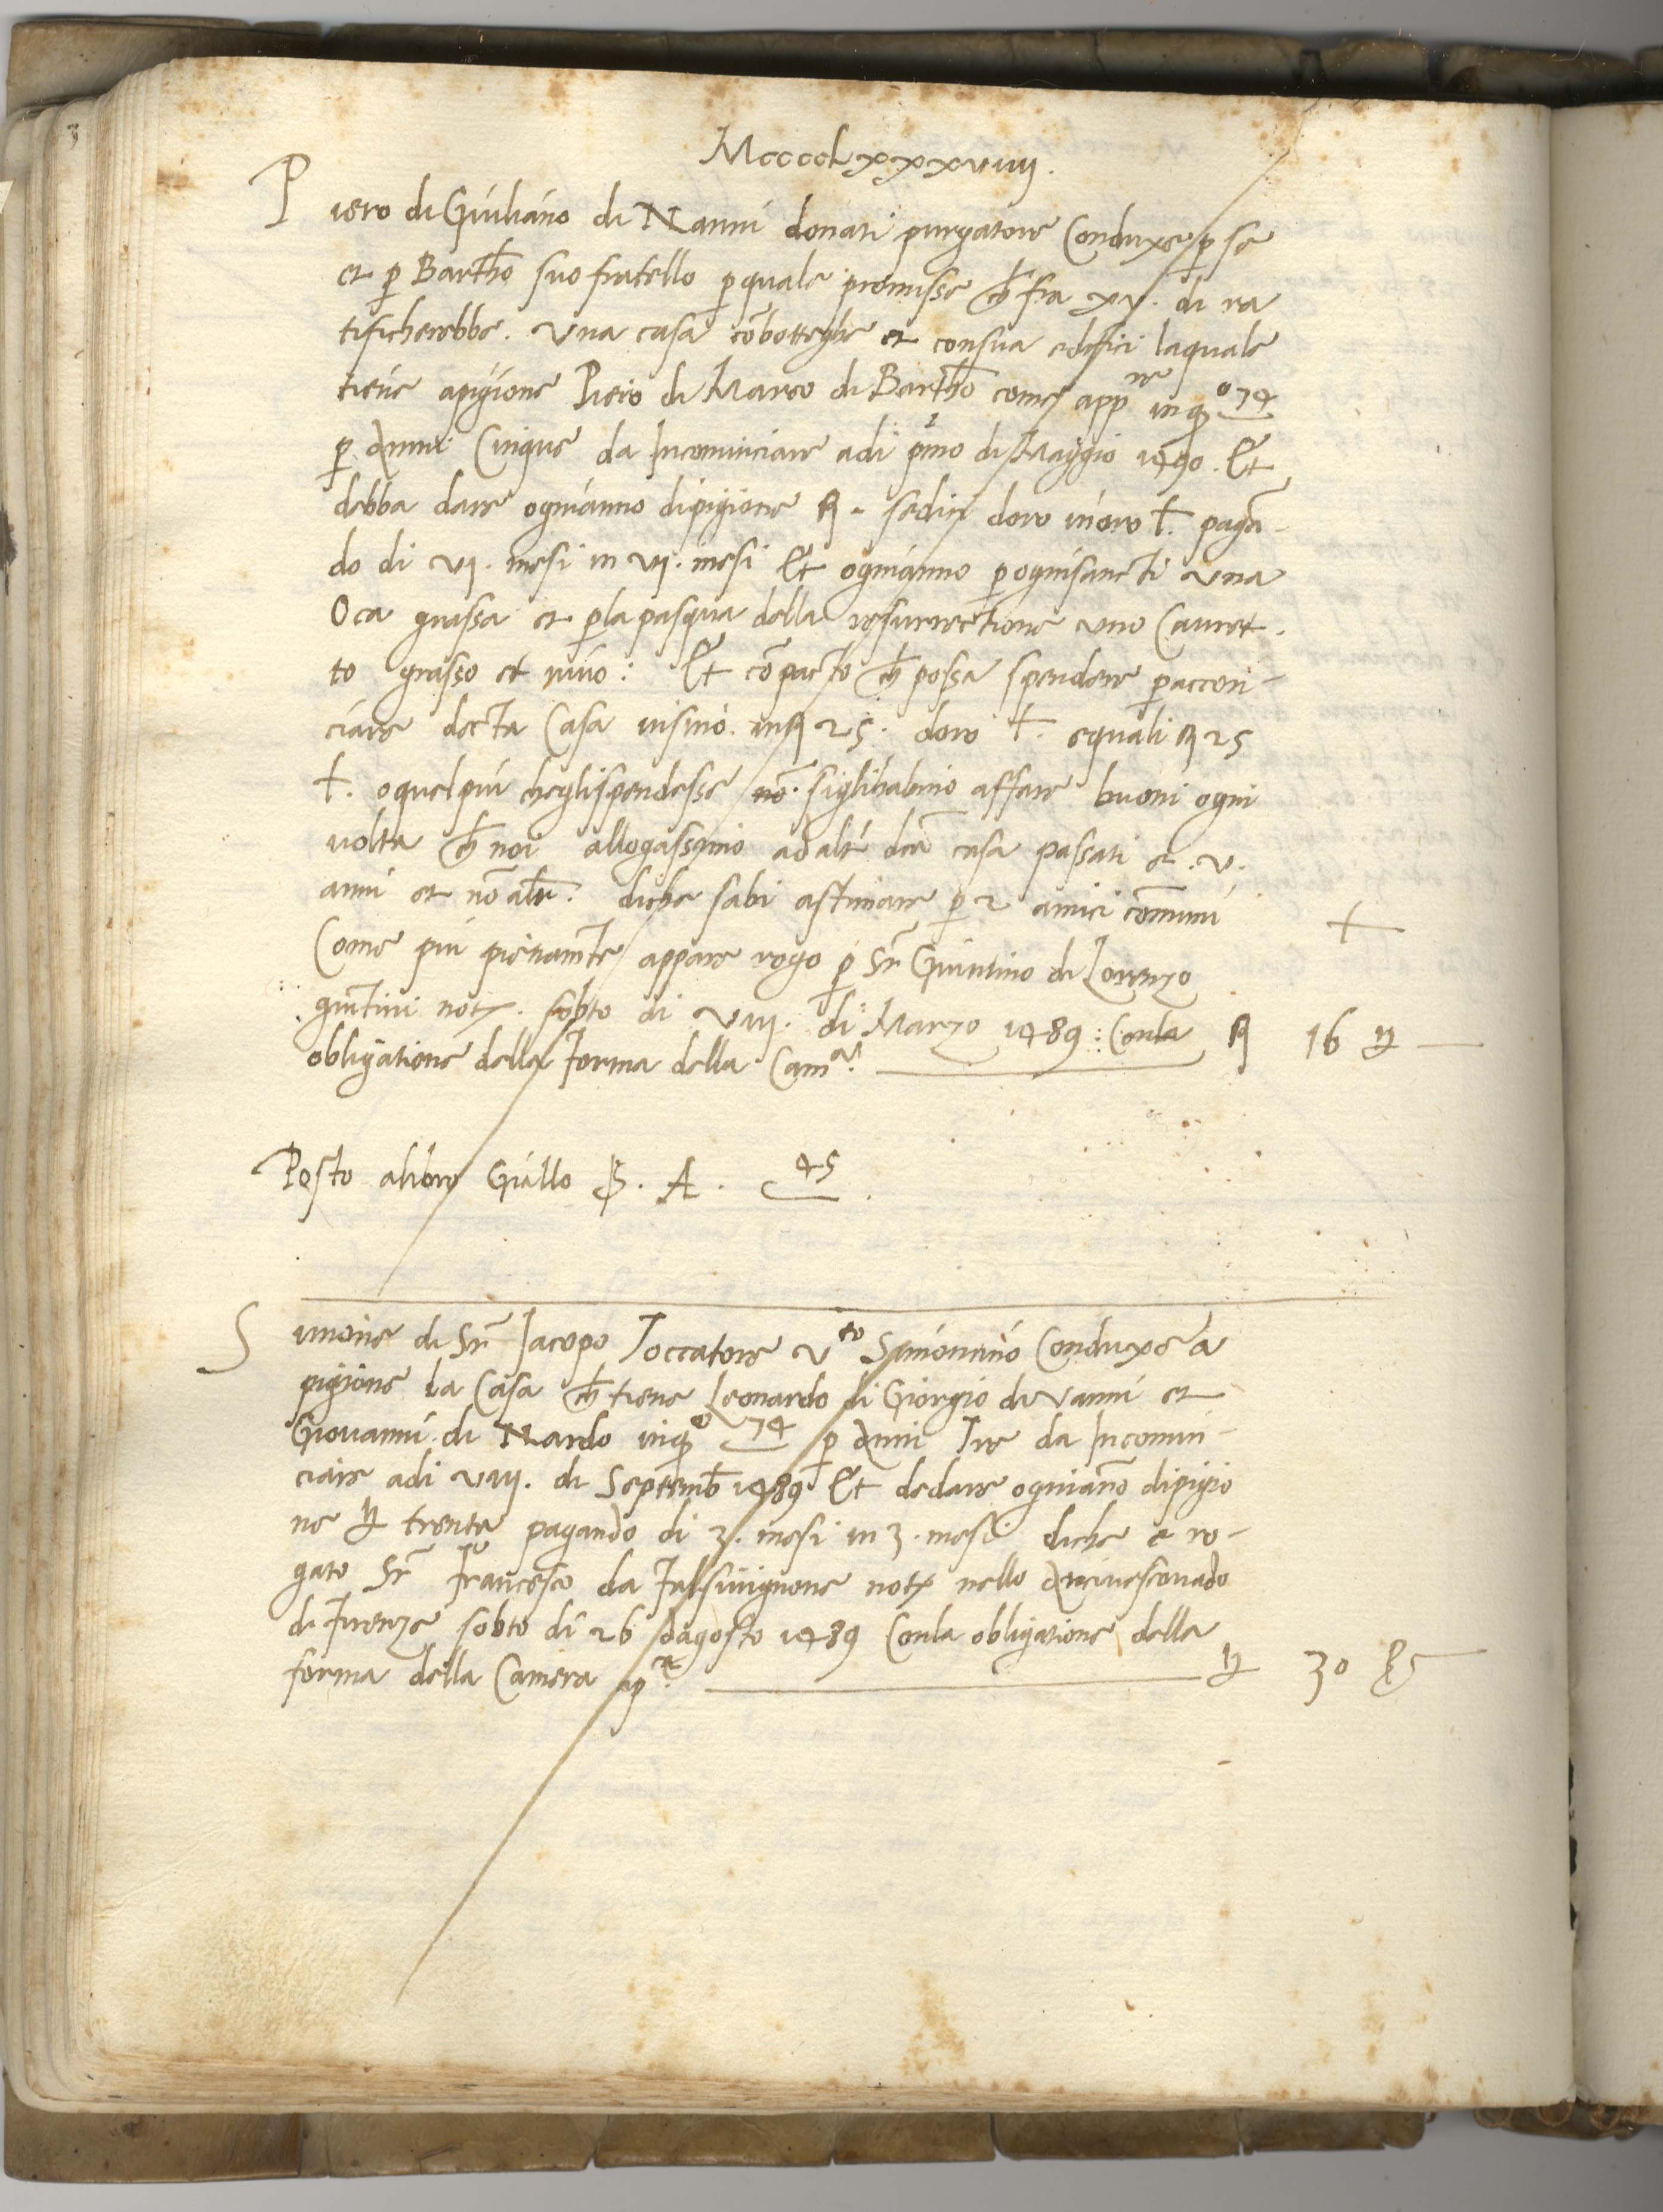 Mcccclxxxviiij.
Piero di Giuliano di Nanni donati purgatore Conduxe p̱ se
et p̱ Barth̄o suo fratello p̱quale promisse ch̄ fra xv. di ra
tificherebbe. Una casa cō botteghe et consua edifici laquale
tiene apigione Piero di Marco di Barth̄o come app.re in q̱o 74
p̱ Anni Cinque da Incominciare adi p̱mo di Maggio 1490. Et
debba dare ogni anno dipigione sedici doro inoro t. pagā-
do di vj. mesi in vj. mesi Et ogni anno p̱ ognisancti una
Oca grassa et p̱la pasqua della resurrectione uno Cavret-
to grasso et vivo: Et cō pacto ch̄ possa spendere p̱ acconc-
ciare decta Casa insino. in 25. doro t. equali 25
t. oquel piu cheglispendesse no. siglihabino affare buoni ogni
volta ch̄ noi allogassimo ad altr̄ dc̄a casa passati e .v.
anni et nō altr̄. diche sabi astimare p̱ 2 amici cōmuni
Come piu pienamt̄e appare rogo p̱ Sr̄ Giuntino di Lorenzo
giuntini not. sobto di viij. di Marzo 1489: Conla 16
obligatione della Forma della Cam.a
Posto alibro Giallo S. A. 45
Simone di Sr̄ Jacopo Toccatore v.to Simonino Conduxe a
pigione la Casa ch̄ tiene Leonardo di Giorgio di Vanni et
Giovanni di Nardo inq̱o 74 p̱ Anni Tre da Incomin-
ciare adi viij. di Septemb̄ 1489 Et dedare ogni anō dipigio
ne trenta pagando di 3. mesi in 3. mesi diche e ro-
gato Sr̄ Francesco da not. nello Arcivescovado
di Firenze sobto di 26 dagosto 1489 Conla obligatione della
forma della Camera ap.ca 30